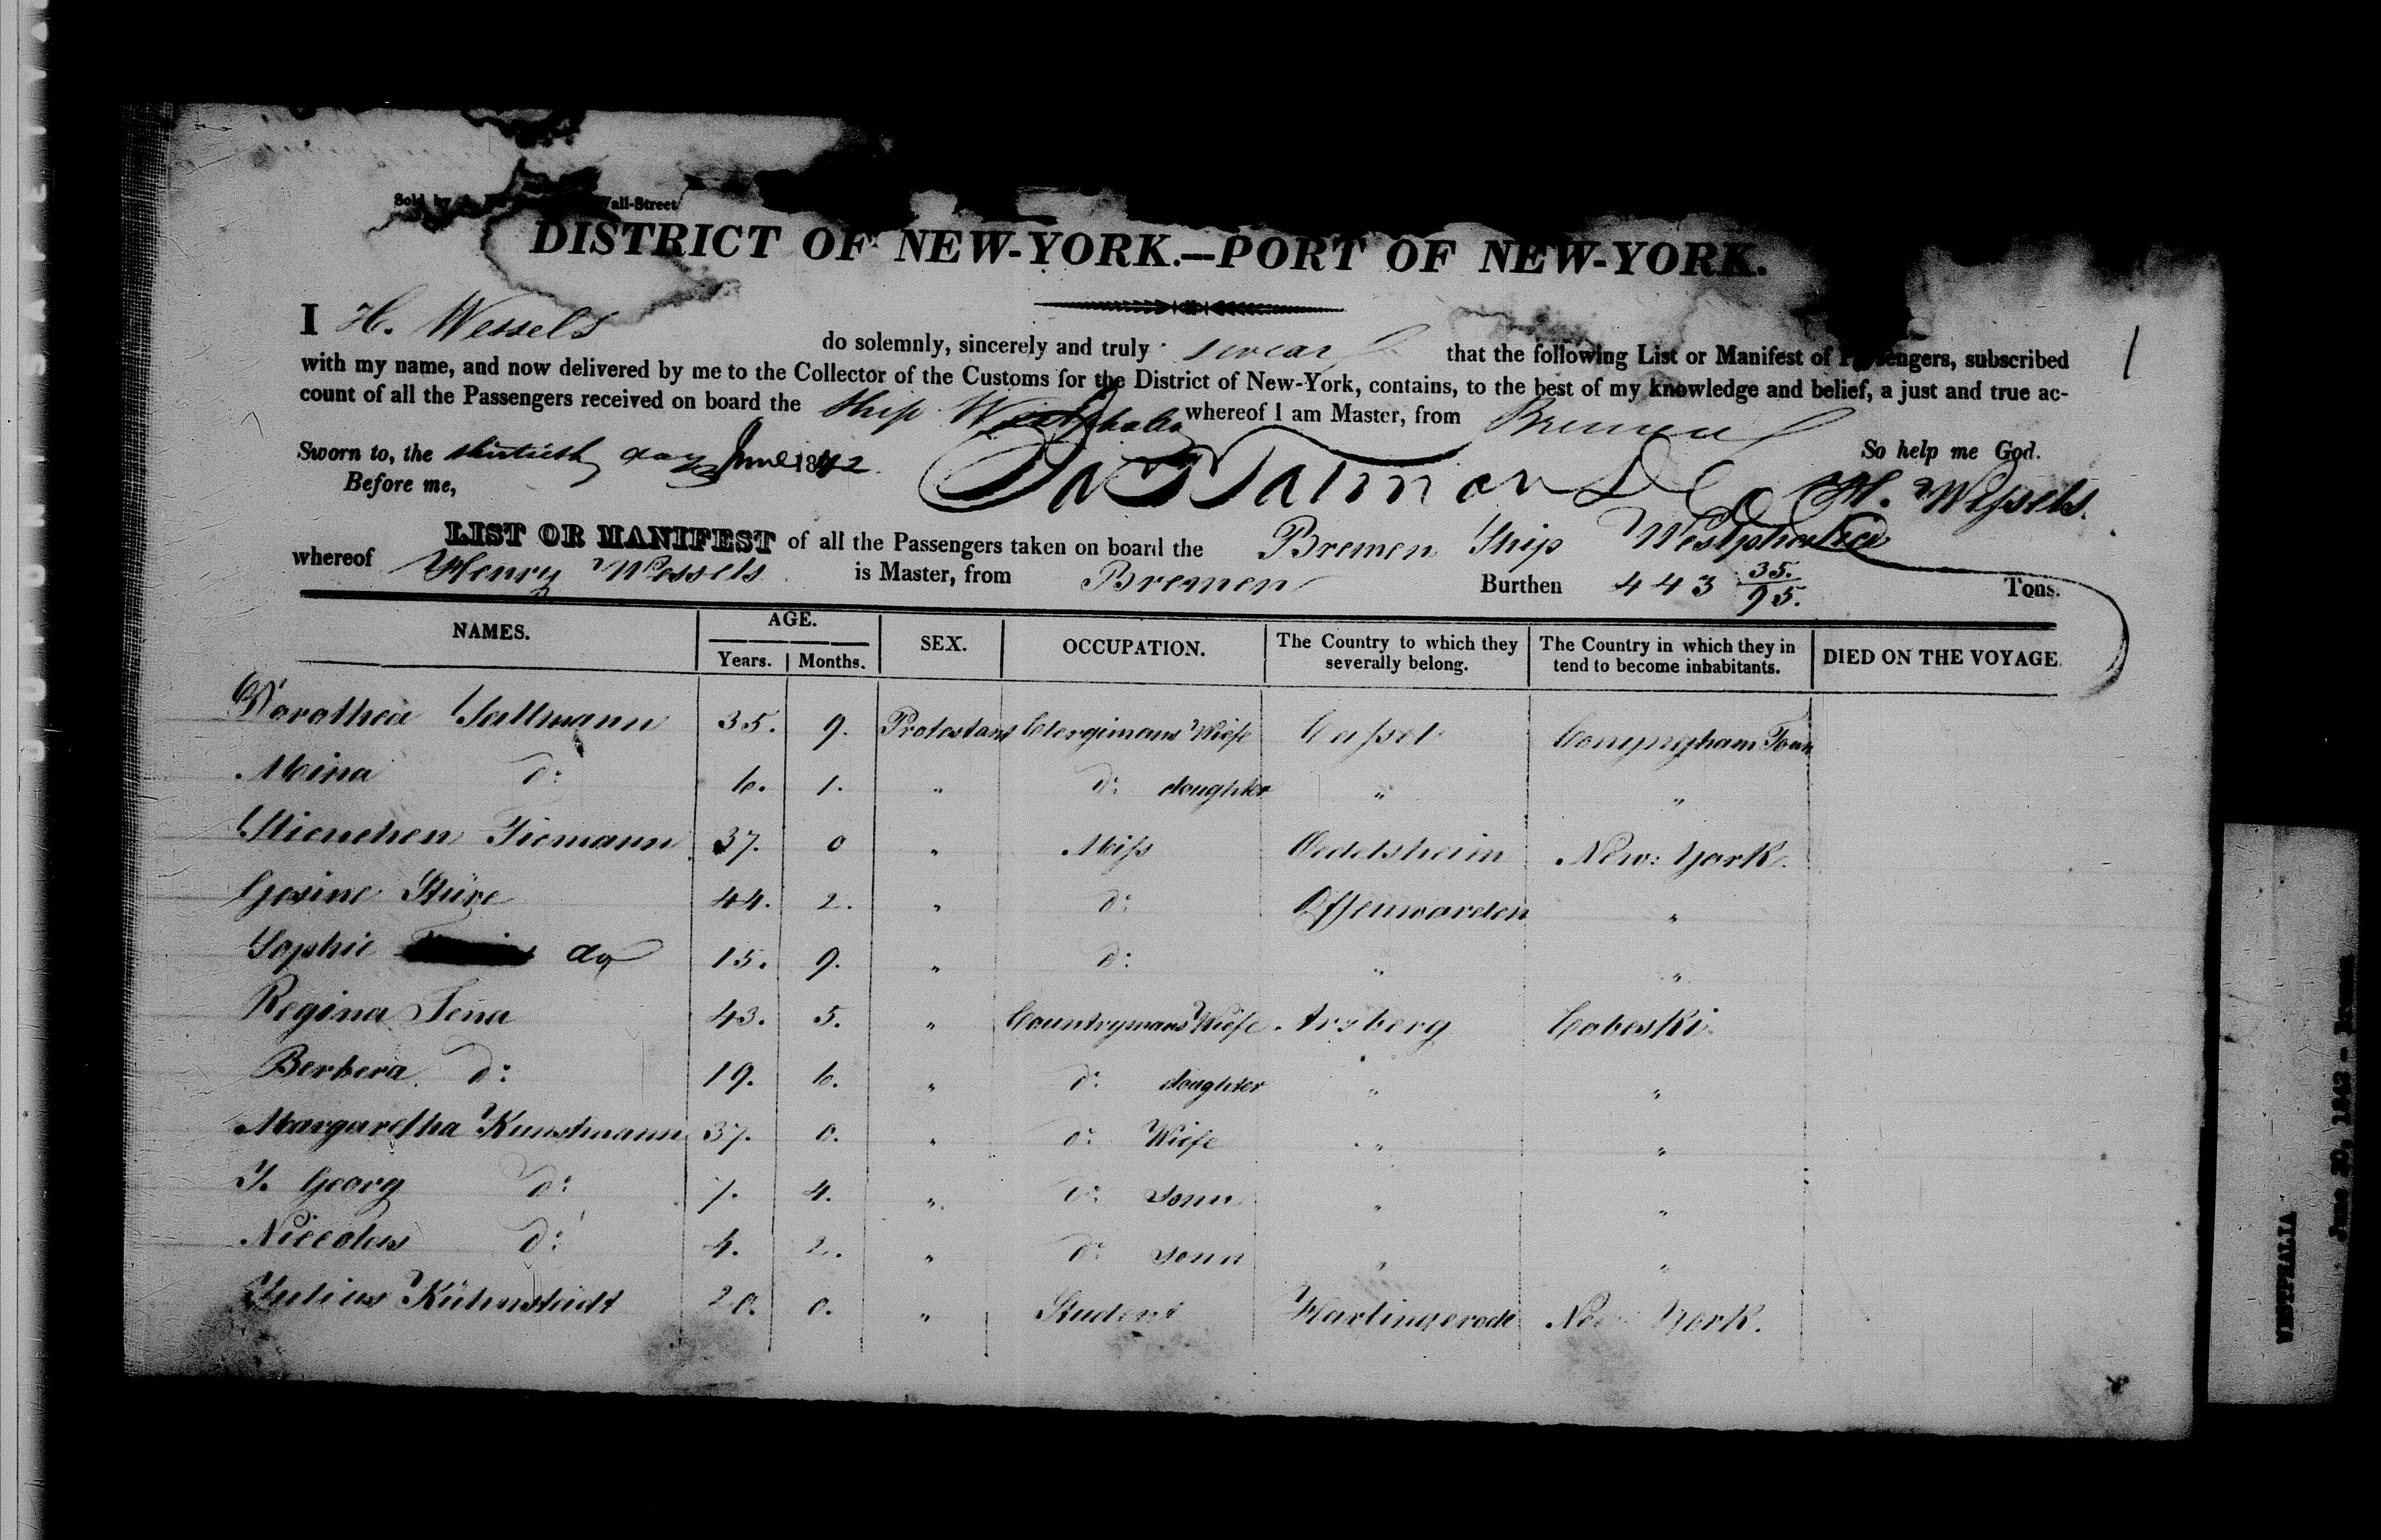 Sold by all-Street
DISTRICT OF NEW-YORK.—PORT OF NEW-YORK.
I H. Wessels do solemnly, sincerely and truly swear that the following List or Manifest of Passengers, subscribed
with my name, and now delivered by me to the Collector of the Customs for the District of New-York, contains, to the best of my knowledge and belief, a just and true ac-
count of all the Passengers received on board the Ship Westphalia whereof I am Master, from Bremen
Sworn to, the day June 1842. So help me God.
Before me, H. Wessels.
LIST OR MANIFEST of all the Passengers taken on board the Bremen Ship Westphalia
whereof Henry Wessels is Master, from Bremen Burthen 443 35/95. Tons.
NAMES. AGE. Years. Months. SEX. OCCUPATION. The Country to which they severally belong. The Country in which they intend to become inhabitants. DIED ON THE VOYAGE.
Dorothea Sallmann 35. 9. Protestant Clergimans Wiefe Cassel Conyngham Town
Meina do: 6. 1. " do: daughter " "
Stienchen Tiemann 37. 0 " Miss Oedelsheim New: York.
Gesine Stüre 44. 2. " do: Offenwarden "
Sophie do 15. 9. " do: " "
Regina Jena 43. 5. " Countrymans Wiefe Arzberg Cobeski
Berbera do: 19. 6. " do: daughter " "
Margaretha Kunstmann 37. 0. " do: Wiefe " "
J. Georg do: 7. 4. " do: sonn " "
Niccolus do: 4. 2. " do: sonn " "
Julius Kühnstädt 20. 0. " Student Harlingerode New York.
WESTPHALIA